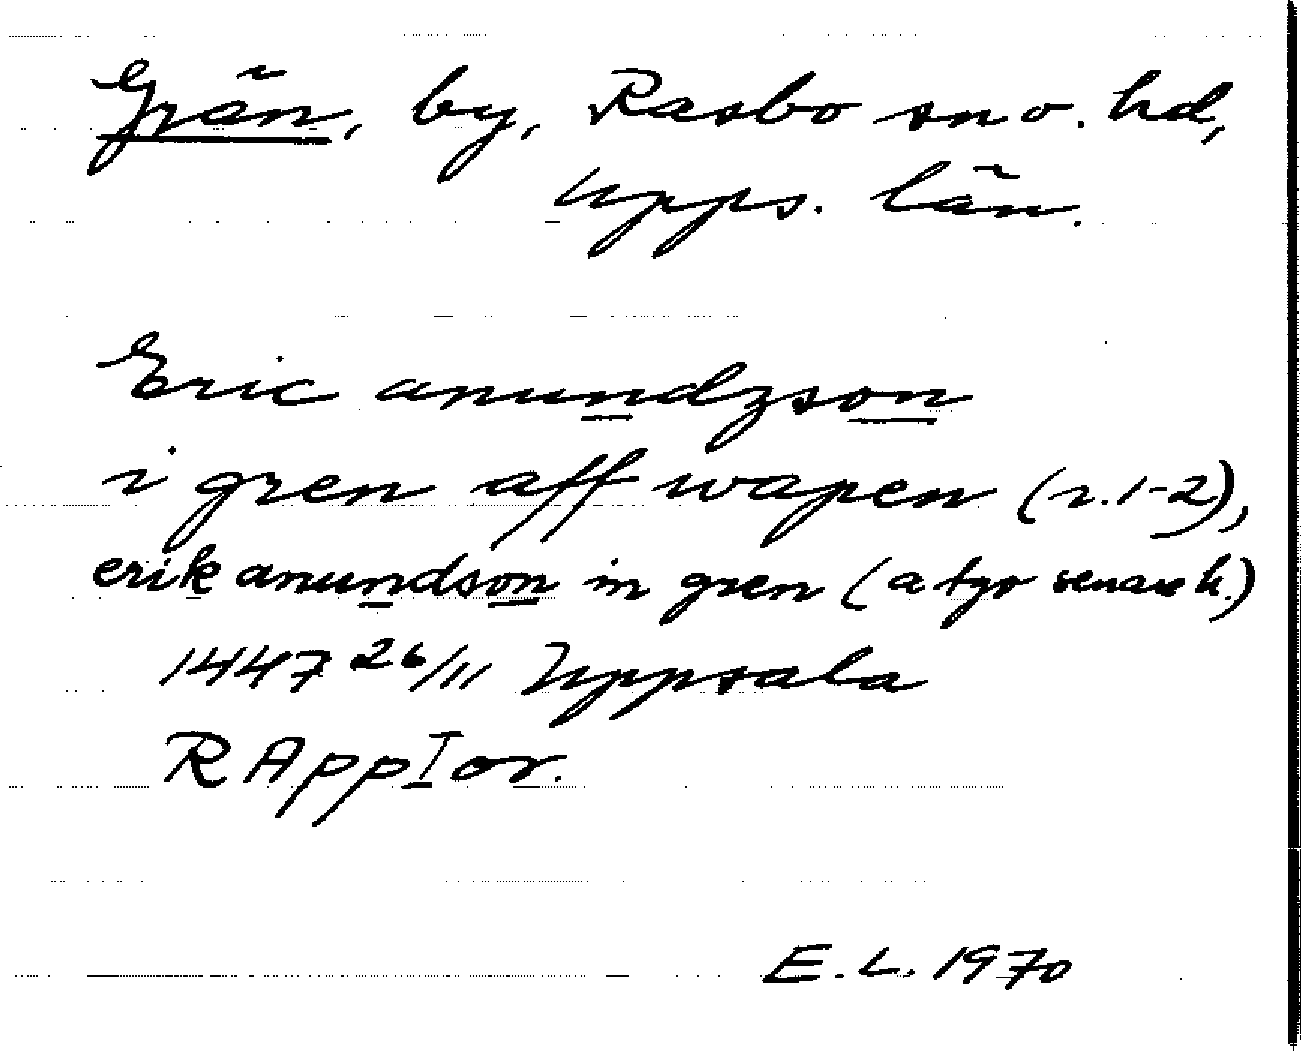 Grän, by, Rasbo sn o. hd,
Upps. län.
Eric anundzson
i gren aff wapen (r. 1-2),
erik anundson in gren (a tgo senare h.)
1447 26/11 Uppsala
RAppI or.
E.L. 1970